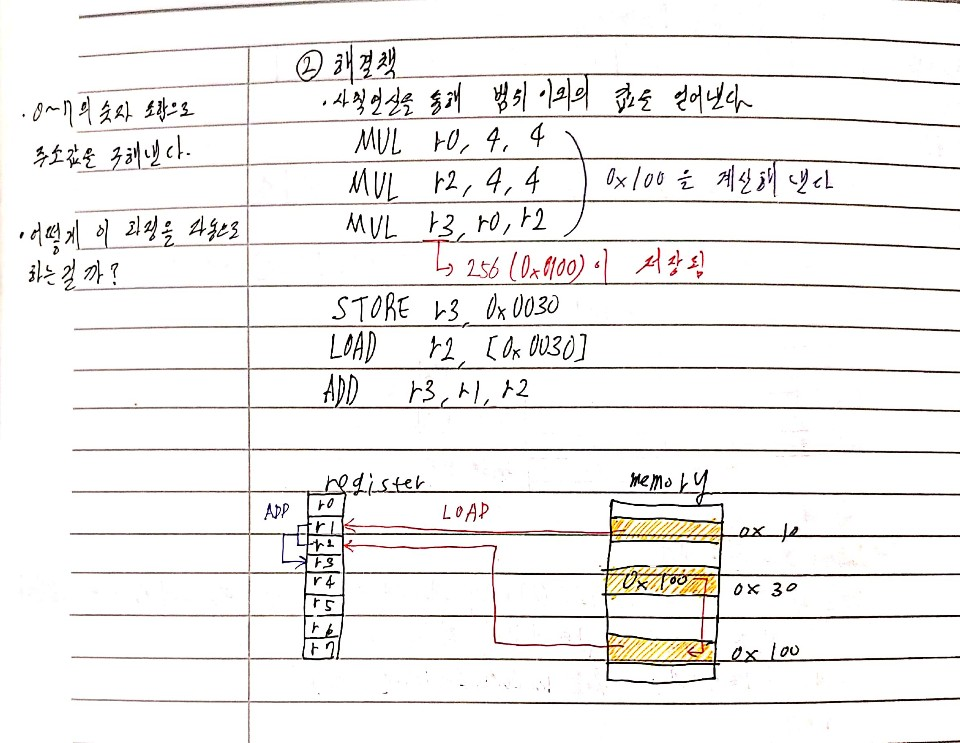 ② 해결책
· 사칙연산을 통해 범위 이외의 값을 얻어낸다
· 0~7의 숫자 조합으로
주소값을 구해낸다.
MUL r0, 4, 4
MUL r2, 4, 4
MUL r3, r0, r2
0x100을 계산해 낸다
· 어떻게 이 과정을 자동으로
하는걸까?
↳ 256 (0x0100)이 저장됨
STORE r3, 0x0030
LOAD r2, [0x0030]
ADD r3, r1, r2
register
memory
ADD
LOAD
r0
r1
r2
r3
r4
r5
r6
r7
0x 10
0x 100
0x 30
0x 100